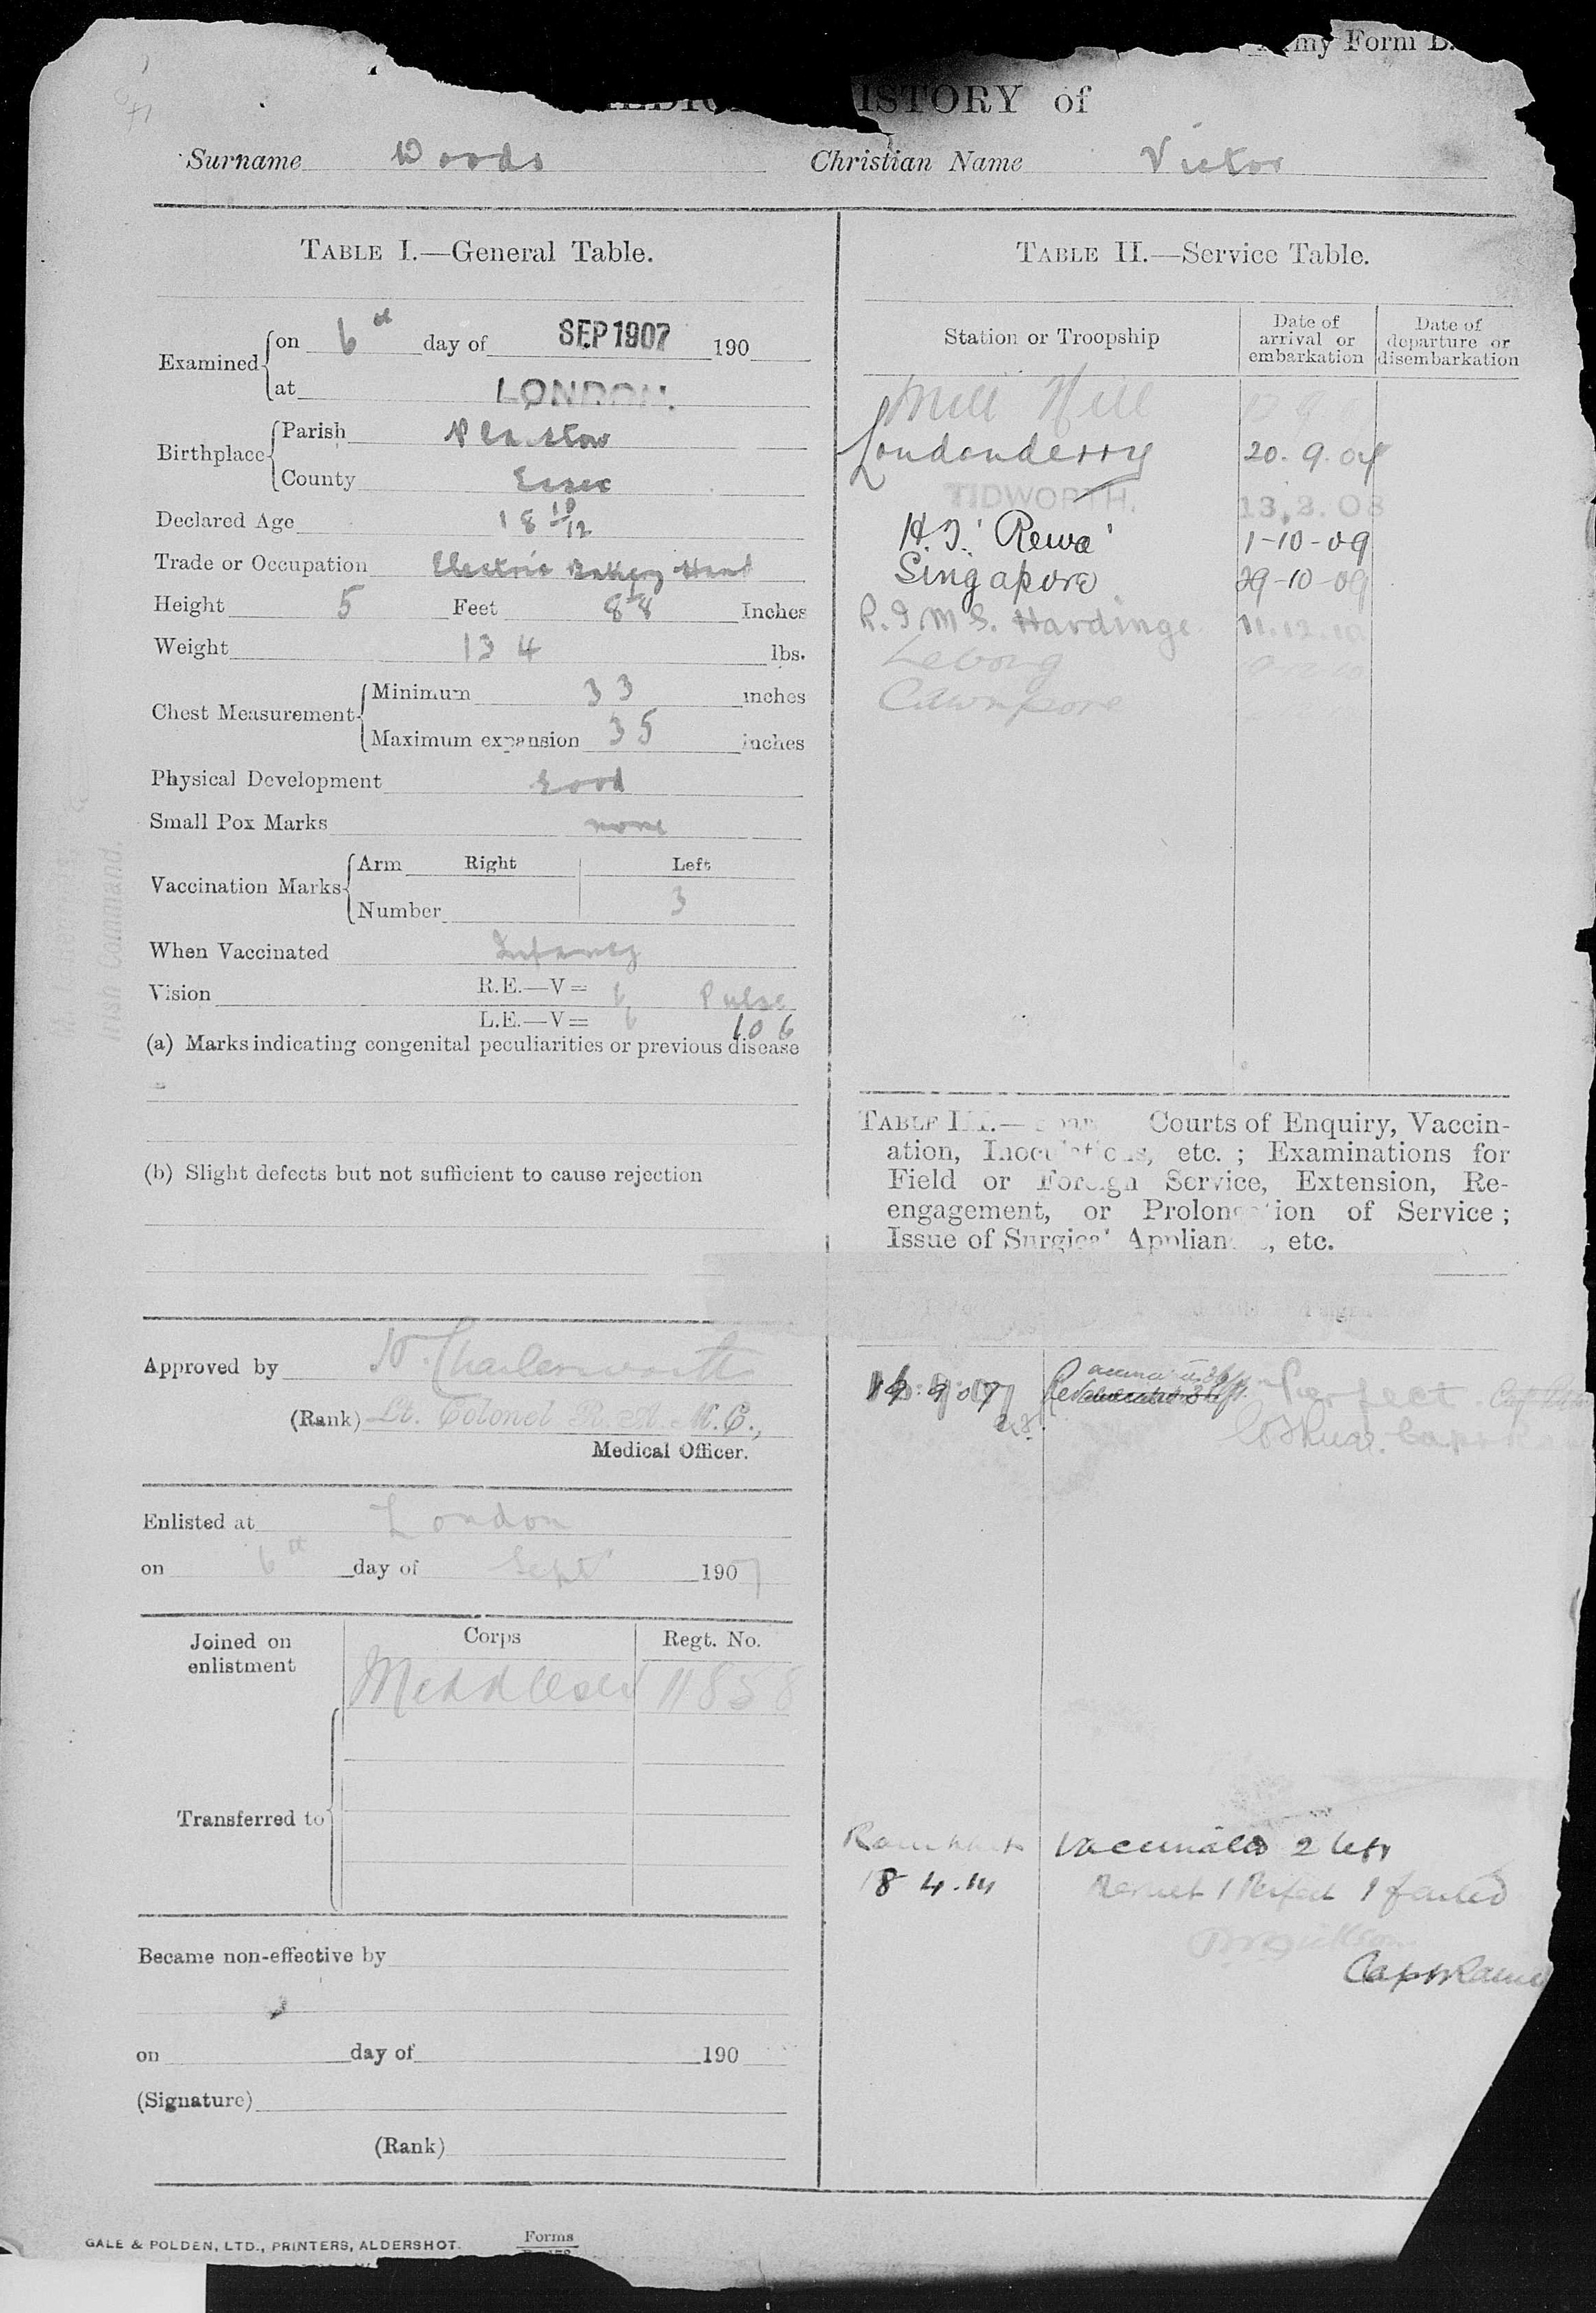 my Form B.
ISTORY of
Surname Woods Christian Name Victor
TABLE I.—General Table.
Examined on 6th day of SEP 1907 190
at LONDON.
Birthplace Parish Plaistow
County Essex
Declared Age 18 10/12
Trade or Occupation Electric Battery Hand
Height 5 Feet 8 1/8 Inches
Weight 134 lbs.
Chest Measurement Minimum 33 inches
Maximum expansion 35 inches
Physical Development Good
Small Pox Marks none
Vaccination Marks Arm Right Left
Number 3
When Vaccinated Infancy
Vision R.E.—V= 6 Pulse
L.E.—V= 6 106
(a) Marks indicating congenital peculiarities or previous disease
(b) Slight defects but not sufficient to cause rejection
Approved by W. Charlesworth
(Rank) Lt. Colonel R. A. M. C.,
Medical Officer.
Enlisted at London
on 6th day of Sept 1907
Joined on enlistment Corps Regt. No.
Middlesex 11858
Transferred to
Became non-effective by
on day of 190
(Signature)
(Rank)
GALE & POLDEN, LTD., PRINTERS, ALDERSHOT.
Forms
Irish Command.
TABLE II.—Service Table.
Station or Troopship Date of arrival or embarkation Date of departure or disembarkation
Mill Hill
Londonderry 20. 9. 07
TIDWORTH. 13.3.08
H.T. 'Rewa' 1-10-09
Singapore 29-10-09
R.I.M.S. Hardinge 11.12.10
Lebong
Cawnpore
TABLE III.— Courts of Enquiry, Vaccin-
ation, Inoculations, etc. ; Examinations for
Field or Foreign Service, Extension, Re-
engagement, or Prolongation of Service ;
Issue of Surgical Appliances, etc.
9 07 Perfect.
Capt
Vaccinated 2 left
18 4.14 Result 1 Perfect 1 failed
Capt Ramc